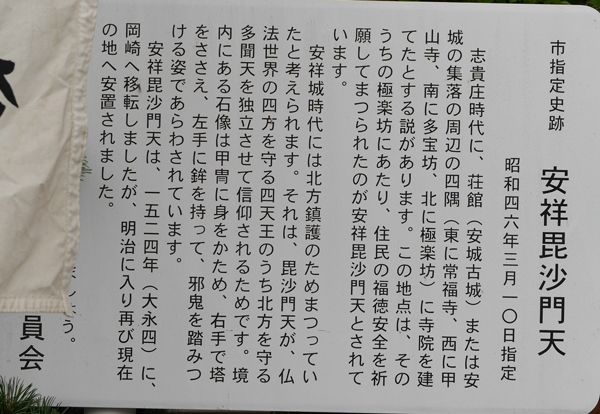 市指定史跡　安祥毘沙門天
昭和四六年三月一〇日指定
志貴庄時代に、荘館（安城古城）または安
城の集落の周辺の四隅（東に常福寺、西に甲
山寺、南に多宝坊、北に極楽坊）に寺院を建
てたとする説があります。この地点は、その
うちの極楽坊にあたり、住民の福徳安全を祈
願してまつられたのが安祥毘沙門天とされて
います。
安祥城時代には北方鎮護のためまつってい
たと考えられます。それは、毘沙門天が、仏
法世界の四方を守る四天王のうち北方を守る
多聞天を独立させて信仰されるためです。境
内にある石像は甲冑に身をかため、右手で塔
をささえ、左手に鉾を持って、邪鬼を踏みつ
ける姿であらわされています。
安祥毘沙門天は、一五二四年（大永四）に、
岡崎へ移転しましたが、明治に入り再び現在
の地へ安置されました。
ましょう。
員会